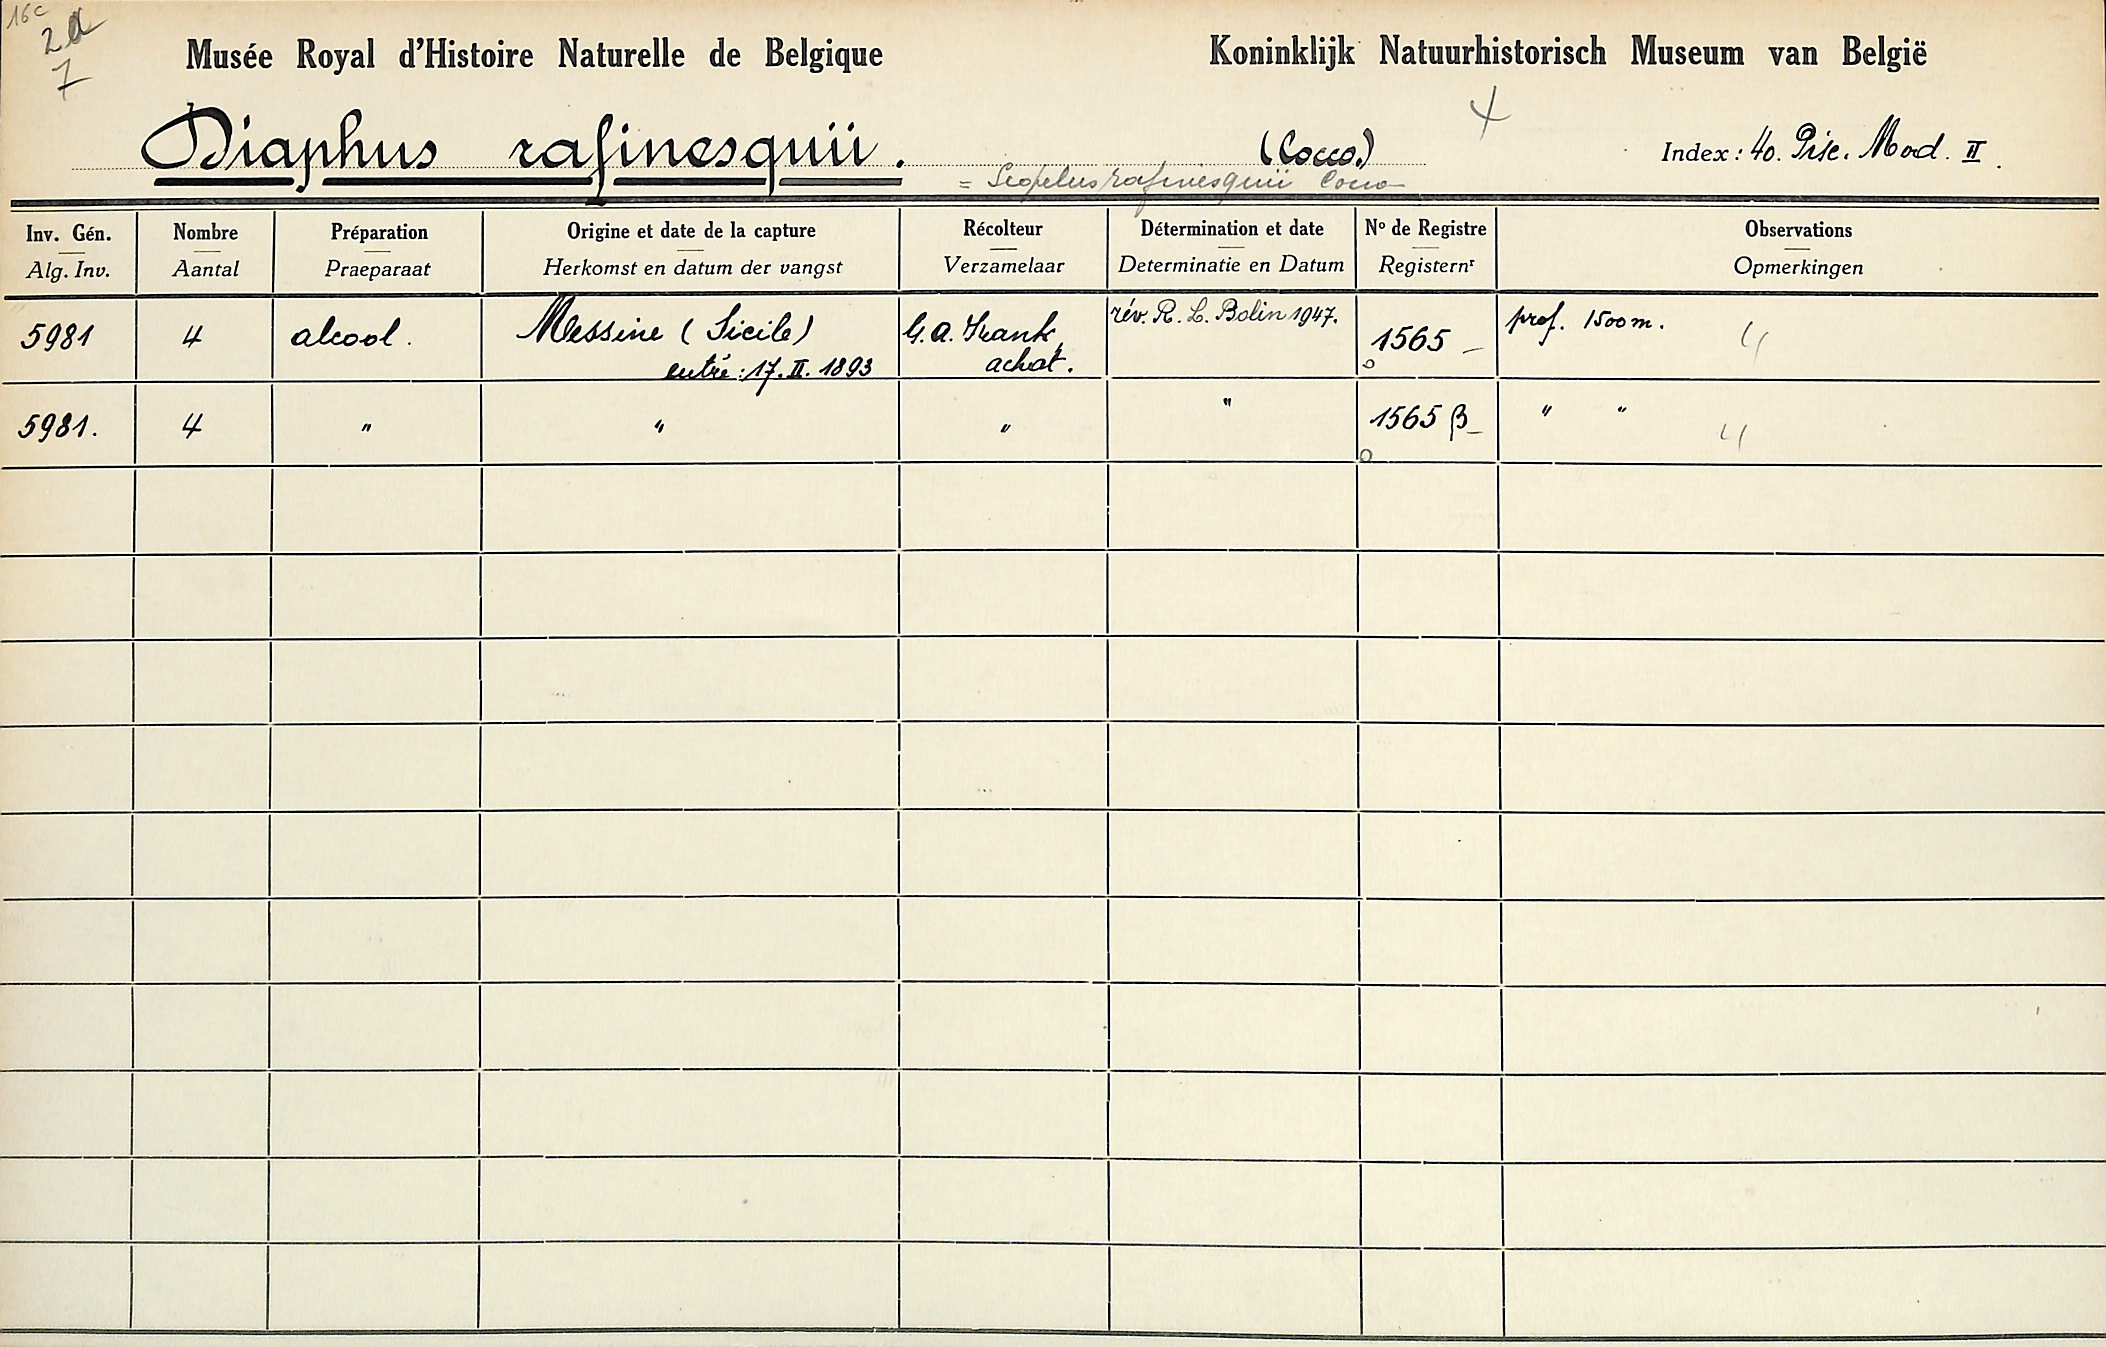 16c
2a
7
Musée Royal d'Histoire Naturelle de Belgique
Koninklijk Natuurhistorisch Museum van België
Diaphus rafinesquii. (Cocco.)
Index: 40. Pisc. Mod. II.
= Scopelus rafinesquii Cocco
Inv. Gén. Nombre Préparation Origine et date de la capture Récolteur Détermination et date Nº de Registre Observations
Alg. Inv. Aantal Praeparaat Herkomst en datum der vangst Verzamelaar Determinatie en Datum Registernr Opmerkingen
5981 4 alcool. Messine (Sicile) G. A. Frank, rév. R. L. Bolin 1947. 1565 – prof. 1500 m.
entré: 17. II. 1893 achat.
5981. 4 " " " " 1565 β – " "